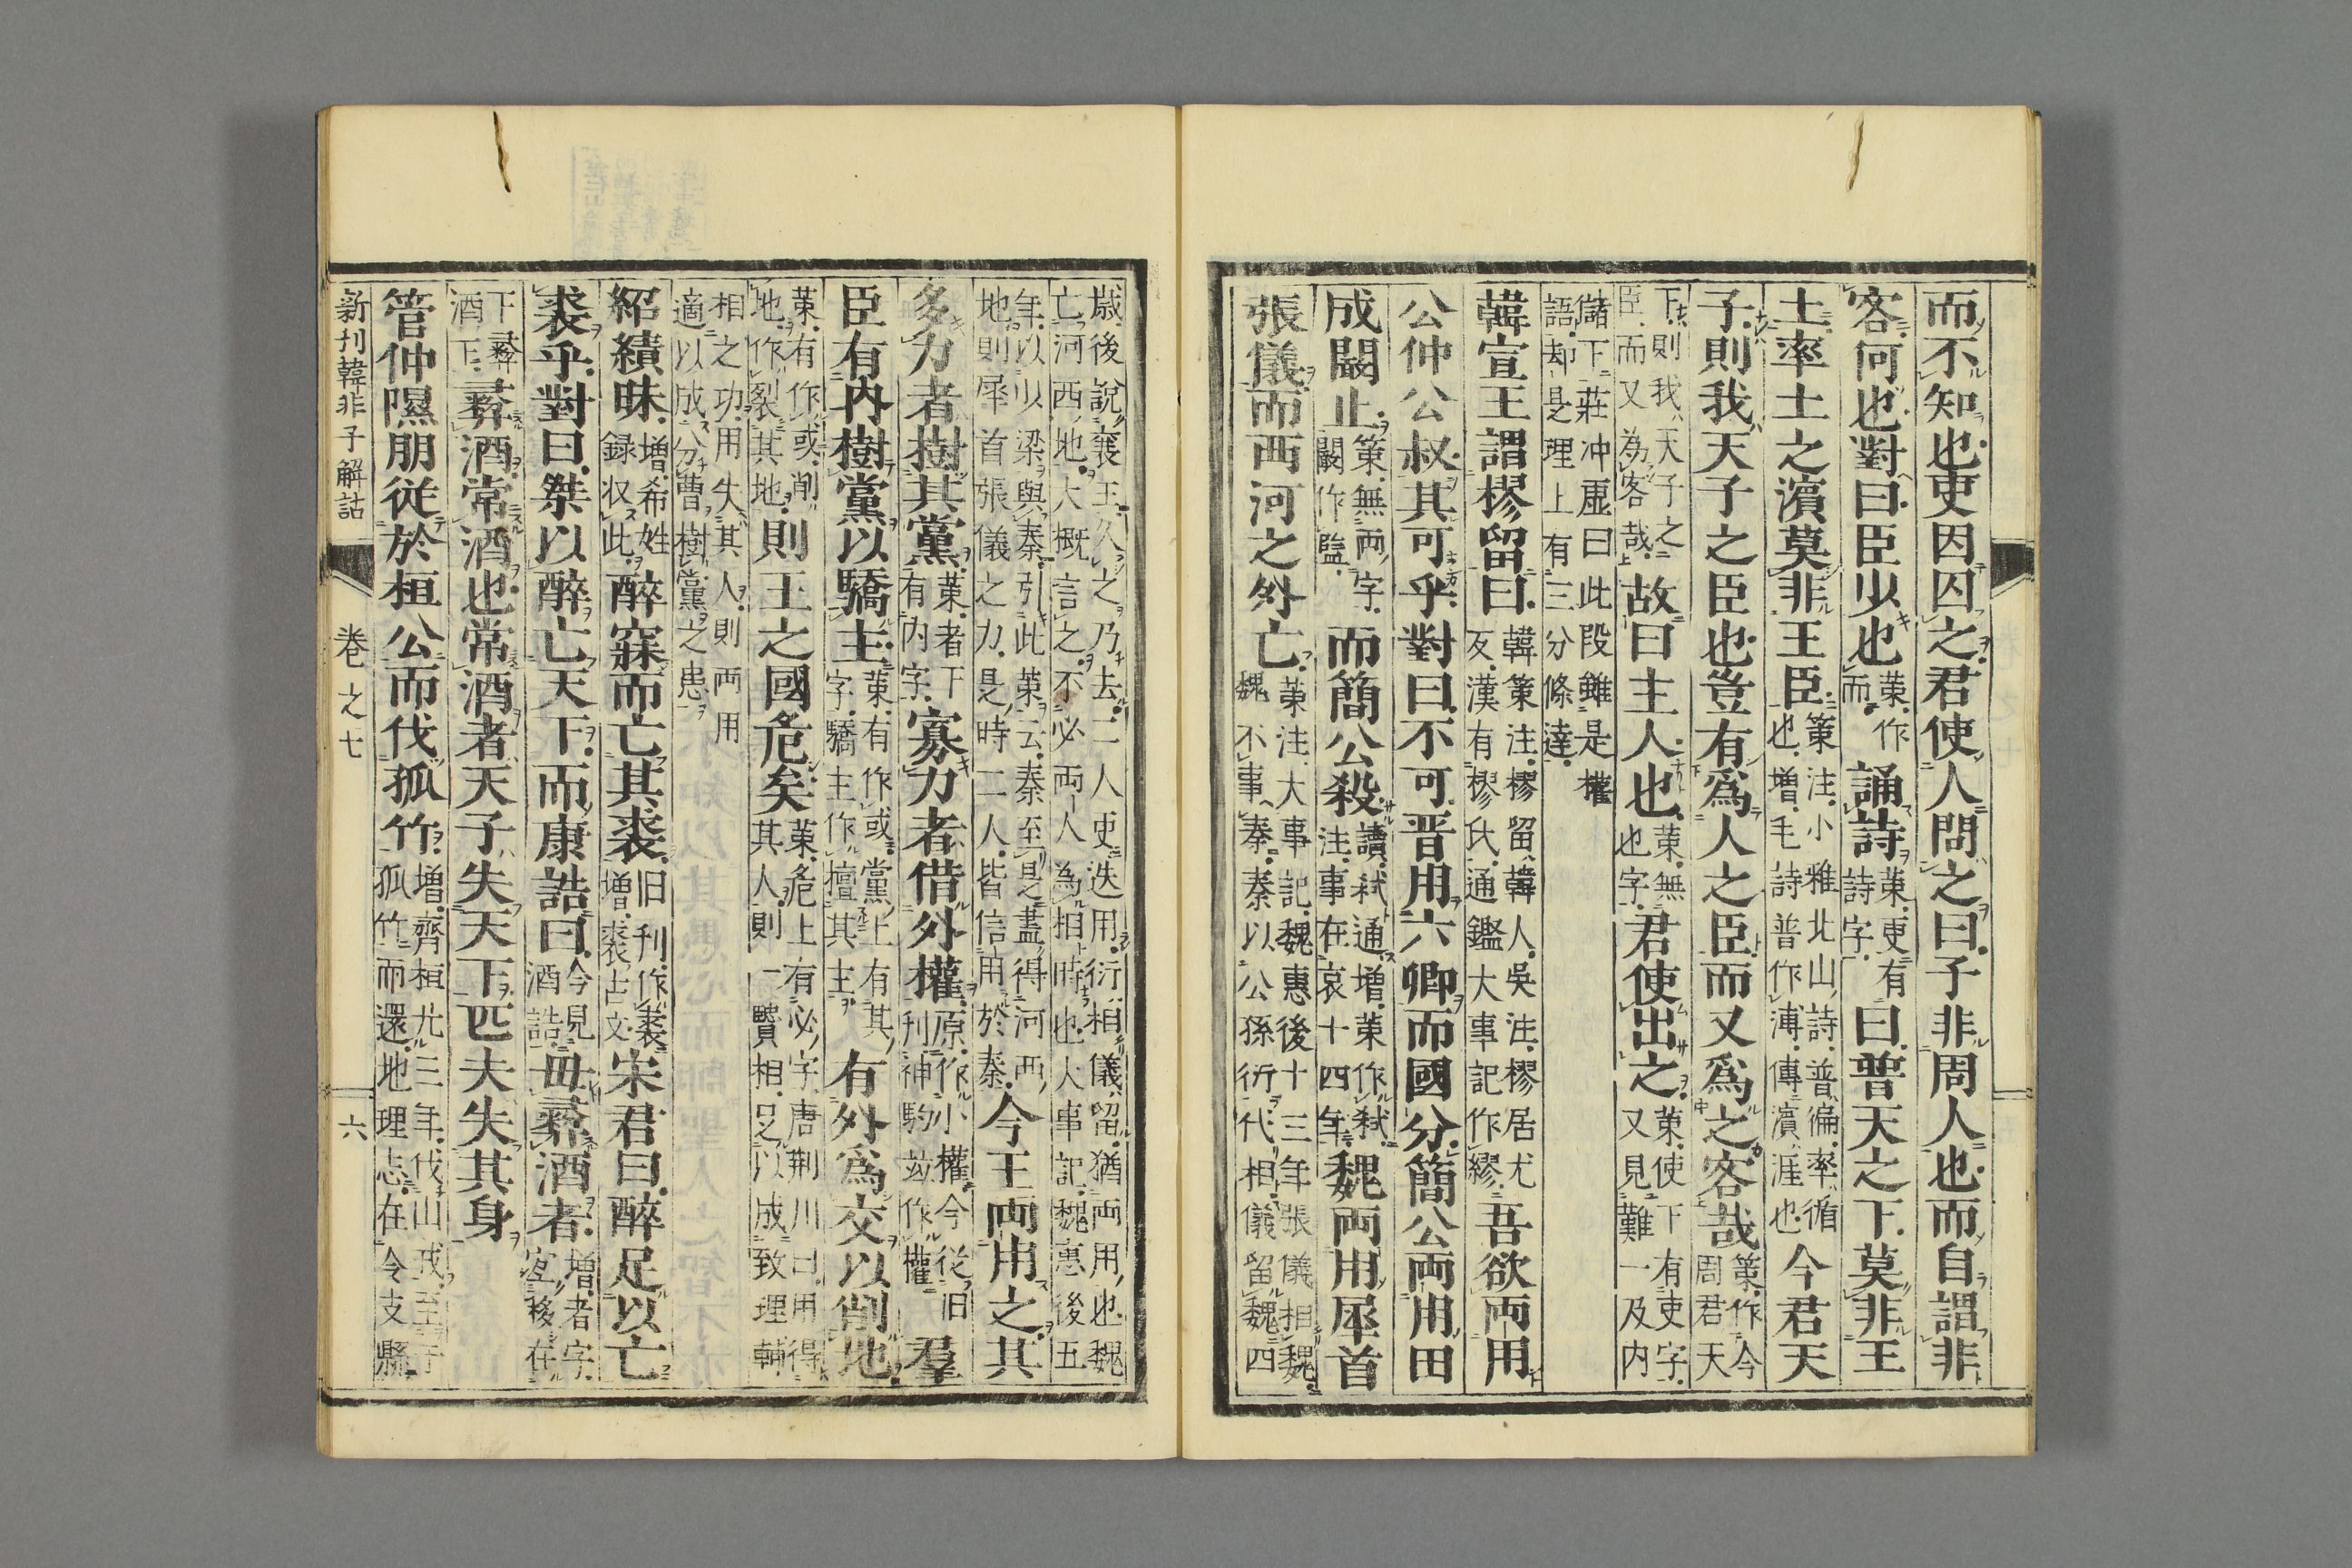 而不知也吏因囚之君使人問之曰子非周人也而自謂非
客何也對曰臣少也策作而誦詩策更有詩字曰普天之下莫非王
土率土之濱莫非王臣策注小雅北山詩普徧率循也増毛詩普作溥傳濱涯也今君天
子則我天子之臣也豈有爲人之臣而又爲之客哉策作今周君天
下則我天子之臣而又為客哉故曰主人也策無也字君使出之策使下有吏字又見難一及内
儲下莊冲虚曰此段雖是權語却是理上有三分條達
韓宣王謂樛留曰韓策注樛留韓人吳注樛居尤反漢有樛氏通鑑大事記作繆吾欲両用
公仲公叔其可乎對曰不可晋用六卿而國分簡公両用田
成闞止策無両字闞作監而簡公殺讀弑通増策作弑注事在哀十四年魏両用犀首
張儀而西河之外亡策注大事記魏惠後十三年張儀相魏魏不事秦秦以公孫衍代相儀留魏四
歳後說襄王久之乃去二人吏迭用衍相儀留猶両用也魏亡河西地大概言之不必両人為相時也大事記魏惠後五
年以少梁與秦引此策云秦至是盡得河西地則犀首張儀之力是時二人皆信用於秦今王両用之其
多力者樹其黨策者下有内字寡力者借外權原作小權今從旧刊神駒竝作權羣
臣有内樹黨以驕主策有作或黨上有其字驕主作擅其主有外爲交以削地
策有作或削地作裂其地則王之國危矣策危上有必字唐荆川曰用得其人則一賢相足以成致理輔
相之功用失其人則両用適以成分曹樹黨之患
紹績昧増希姓録収此醉寐而亡其裘旧刊作裘増裘古文宋君曰醉足以亡
裘乎對曰桀以醉亡天下而康誥曰今見酒誥毋彛酒者増者字宜移在
下彛酒下彛酒常酒也常酒者天子失天下匹夫失其身
管仲隰朋従於桓公而伐孤竹増齊桓廾三年伐山戎至于孤竹而還地理志在令支縣
新刊韓非子解詁　卷之七　六